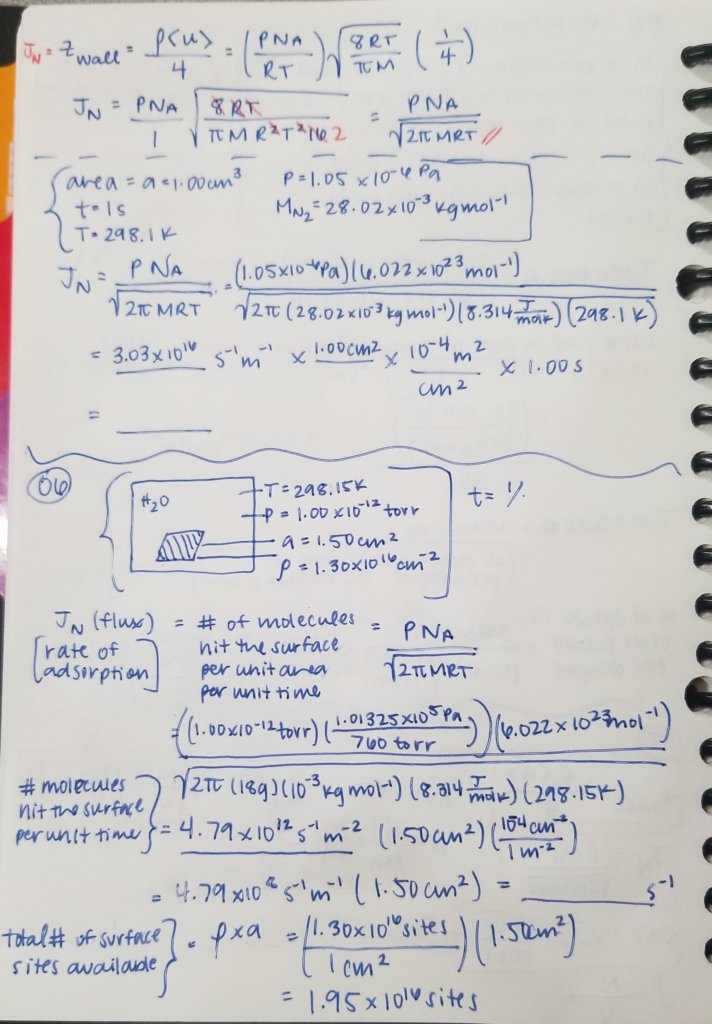 J_N = Z_wall = ρ<u>/4 = (PNA/RT) √(8RT/πM) (1/4)
J_N = PNA/1 √(8RT/πMR²T²16 2) = PNA/√(2πMRT) //
area = a = 1.00cm³ P = 1.05 × 10⁻⁶ Pa
t = 1s M_N₂ = 28.02×10⁻³ kg mol⁻¹
T = 298.1 K
J_N = PNA/√(2πMRT) = (1.05×10⁻⁶Pa)(6.022×10²³mol⁻¹)/√(2π(28.02×10⁻³ kg mol⁻¹)(8.314 J/molK)(298.1K))
= 3.03×10¹⁶ s⁻¹m⁻¹ × 1.00cm² × 10⁻⁴m²/cm² × 1.00s
= ____
06
H₂O T = 298.15K t = 1/.
P = 1.00 × 10⁻¹² torr
a = 1.50cm²
ρ = 1.30×10¹⁶cm⁻²
J_N (flux) = # of molecules = PNA/√(2πMRT)
[rate of hit the surface
adsorption] per unit area
per unit time
= ((1.00×10⁻¹²torr)(1.01325×10⁵Pa/760 torr))(6.022×10²³mol⁻¹)/√(2π(18g)(10⁻³kg mol⁻¹)(8.314 J/molK)(298.15K))
# molecules
hit the surface
per unit time } = 4.79×10¹² s⁻¹m⁻² (1.50cm²)(10⁻⁴cm⁻²/1m⁻²)
= 4.79×10⁸ s⁻¹m⁻¹ (1.50cm²) = ____ s⁻¹
total # of surface
sites available } = ρ×a = (1.30×10¹⁶sites/1cm²)(1.50cm²)
= 1.95×10¹⁶ sites